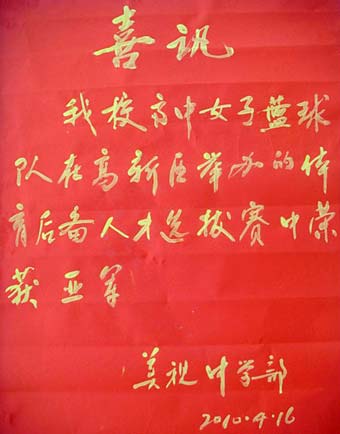 喜讯
我校高中女子蓝球
队在高新区举办的体
育后备人才选拔赛中荣
获亚军
美视中学部
2010.4.16